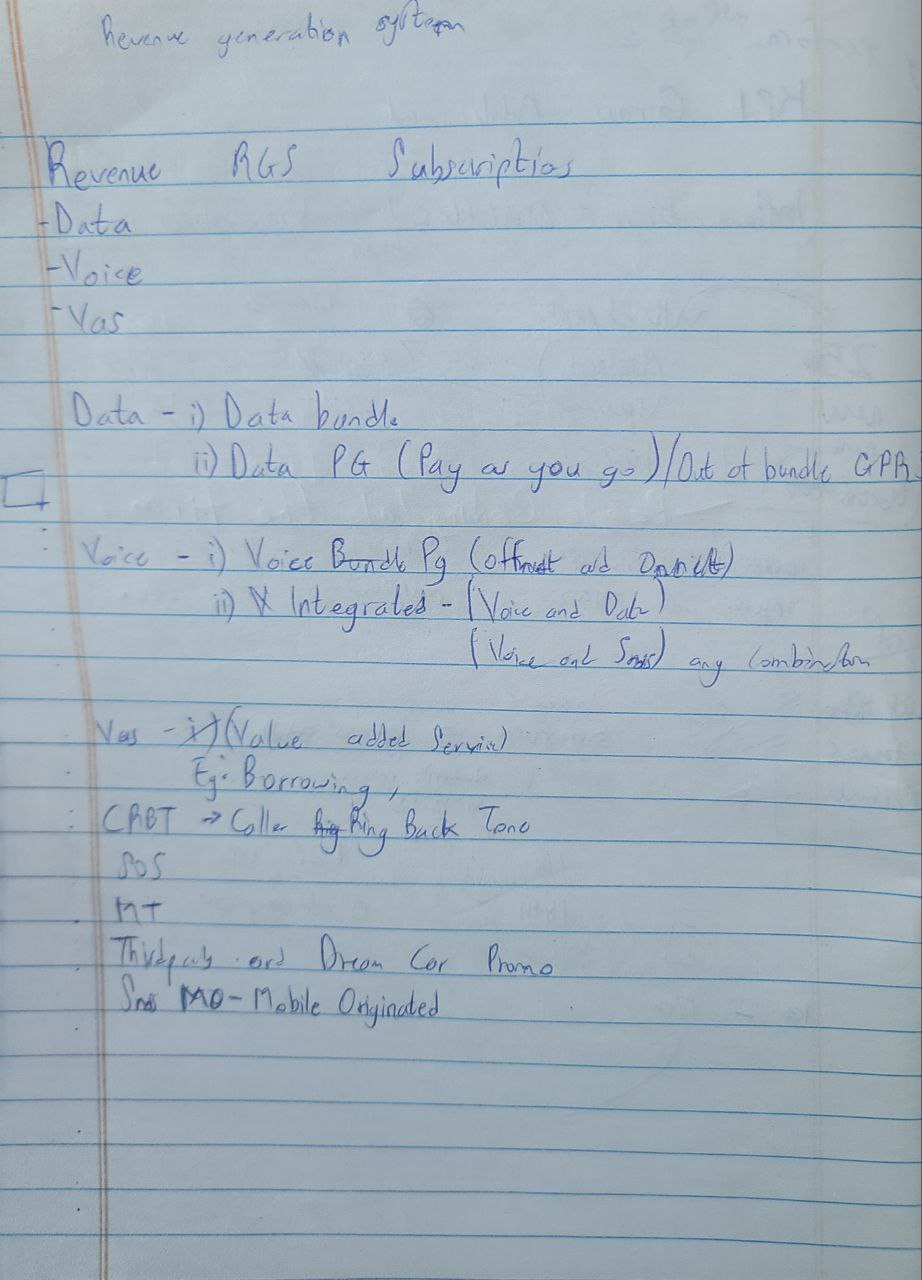 Revenue generation system
Revenue RGS Subscription
-Data
-Voice
-Vas
Data - i) Data bundle
ii) Data PG (Pay as you go)/Out of bundle GPR
Voice - i) Voice Bundle Pg (Offnett and Onnett)
ii) Integrated - (Voice and Data)
(Voice and Sms) any Combination
Vas - i) (Value added Service)
Eg: Borrowing,
CRBT → Caller Ring Back Tone
SOS
MT
Thirdparty and Dream Car Promo
Sms MO - Mobile Originated